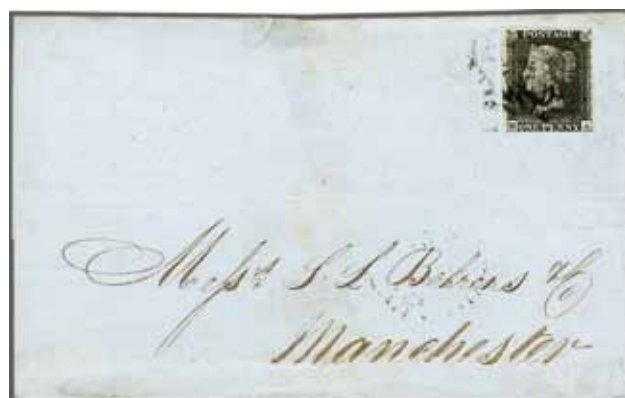 POSTAGE
ONE PENNY
Messrs S. L. Behrens & Co
Manchester